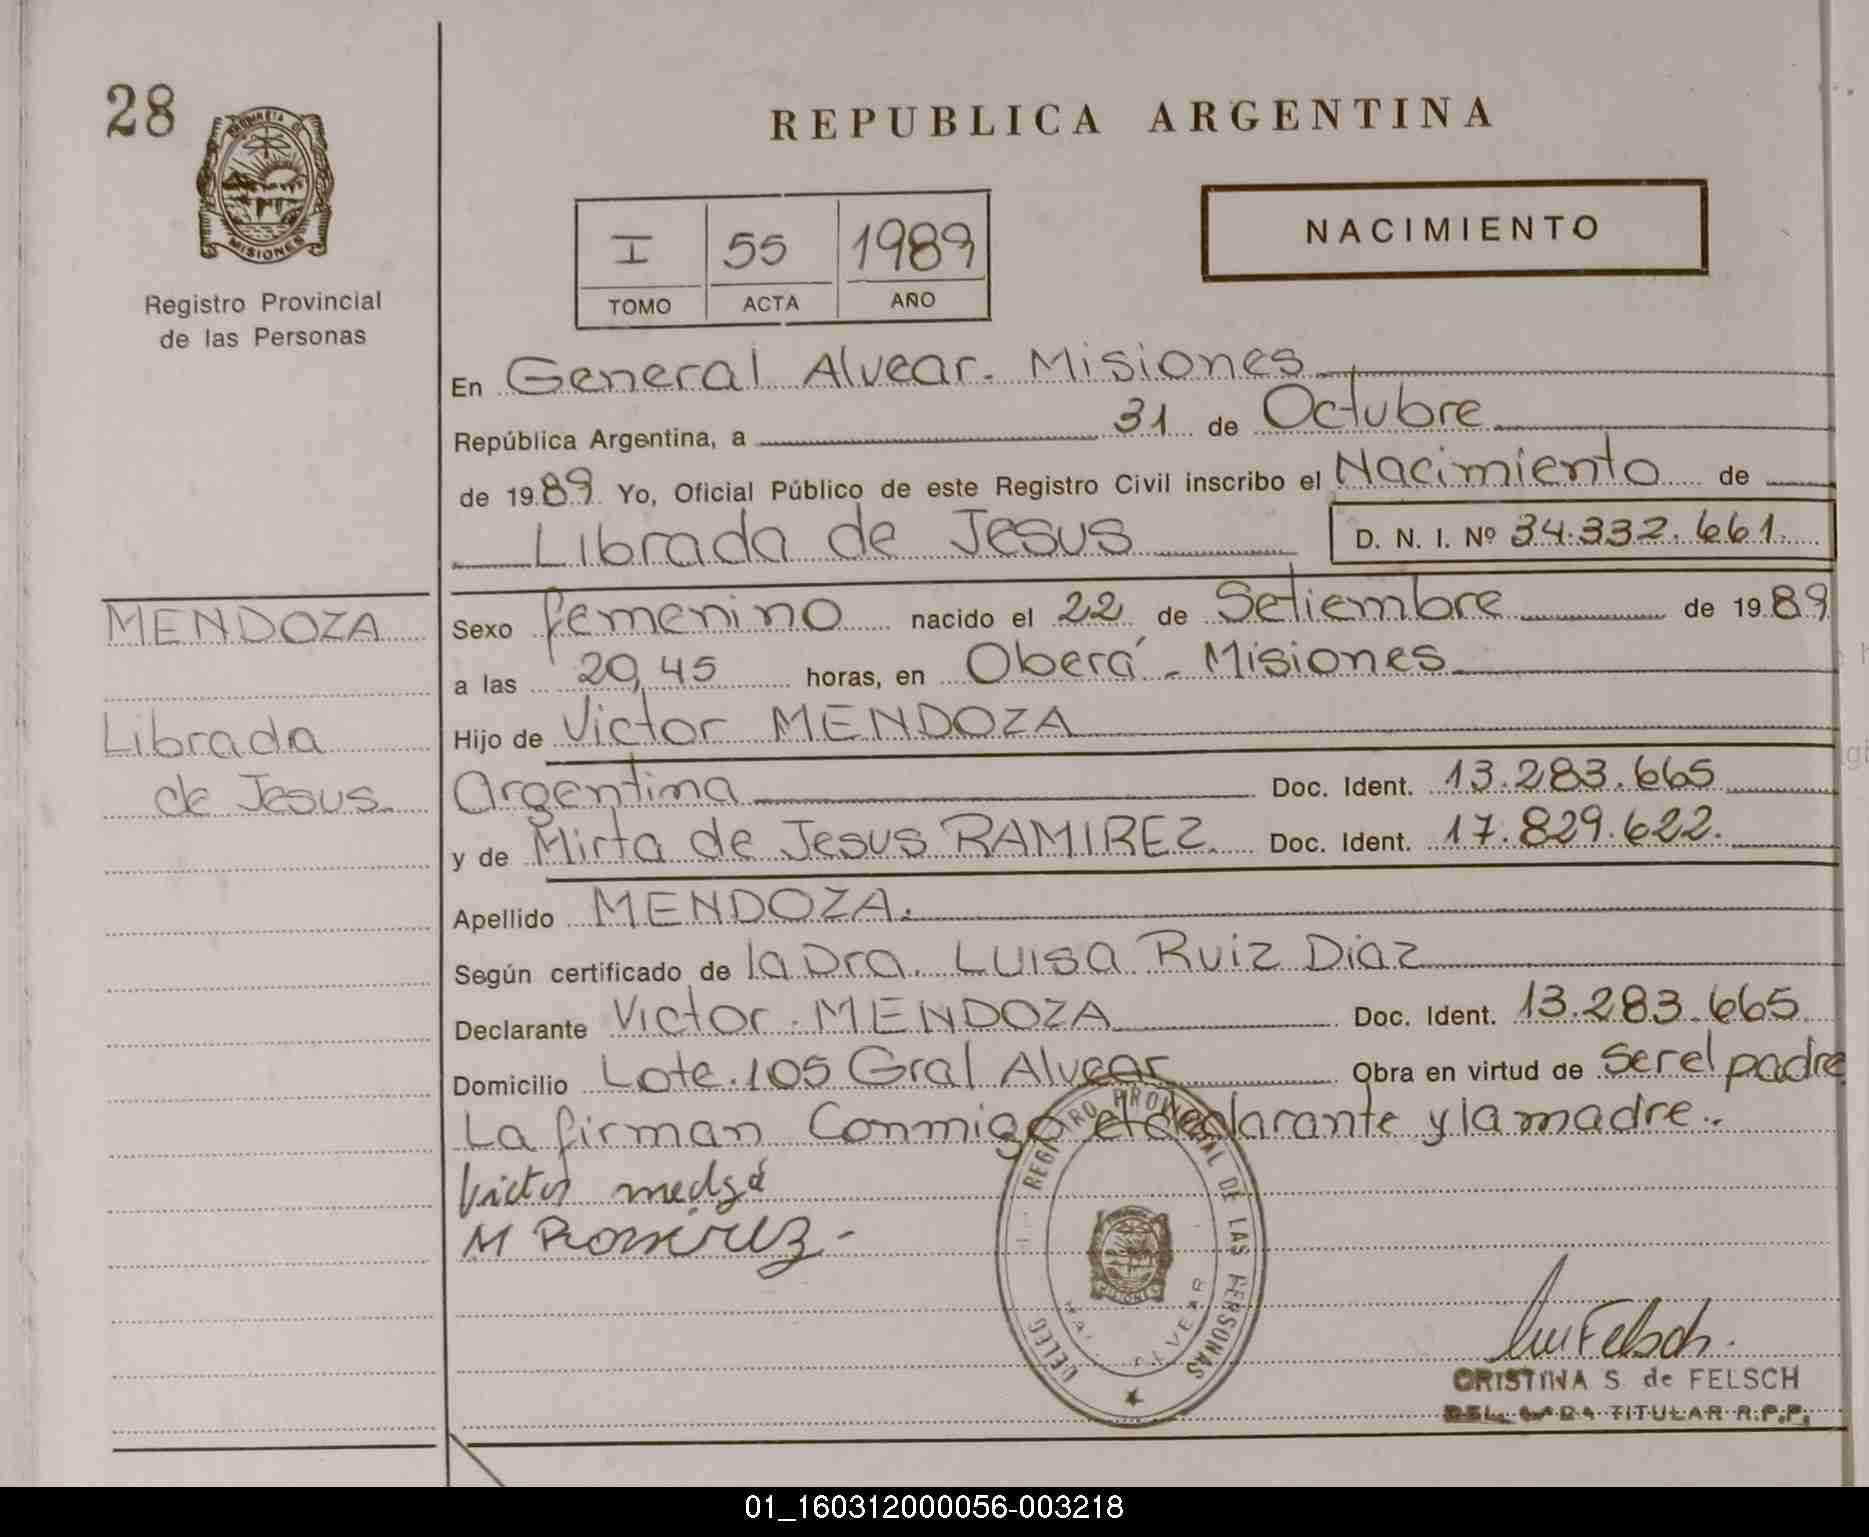 28
REPUBLICA ARGENTINA
MISIONES
Registro Provincial
de las Personas
I 55 1989
TOMO ACTA AÑO
NACIMIENTO
En General Alvear. Misiones
República Argentina, a 31 de Octubre
de 1989 Yo, Oficial Público de este Registro Civil inscribo el Nacimiento de
Librada de Jesus D. N. I. Nº 34.332.661.
MENDOZA
Librada
de Jesus
Sexo femenino nacido el 22 de Setiembre de 1989
a las 20,45 horas, en Oberá - Misiones
Hijo de Victor MENDOZA
Argentina Doc. Ident. 13.283.665
y de Mirta de Jesus RAMIREZ. Doc. Ident. 17.829.622.
Apellido MENDOZA.
Según certificado de la Dra. Luisa Ruiz Diaz
Declarante Victor MENDOZA Doc. Ident. 13.283.665
Domicilio Lote 105 Gral Alvear Obra en virtud de Ser el padre
La firman Conmigo el declarante y la madre.
Victor
M Ramirez
REGISTRO PROVINCIAL DE LAS PERSONAS
DELEG
ALVEAR
MISIONES
Felsch.
CRISTINA S. de FELSCH
TITULAR R.P.P.
01_160312000056-003218